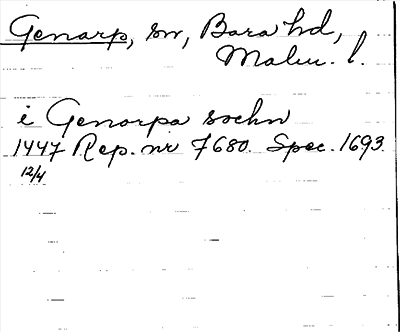 Genarp, sn, Bara hd,
Malm. l.
i Genarpa sochn
1447 Rep. nr 7680. Spec. 1693.
12/4